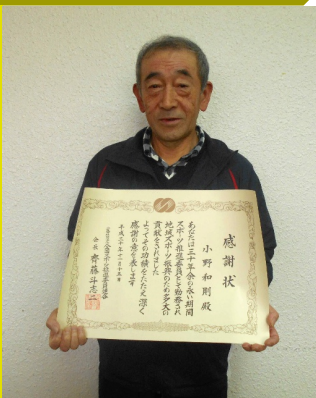 感謝状
小野和則殿
あなたは三十年余の永い期間
スポーツ推進委員として勤務され
地域スポーツ振興のため多大の
貢献をされました
よってその功績をたたえ深く
感謝の意を表します
平成三十年十一月十五日
会長 齊藤斗志二